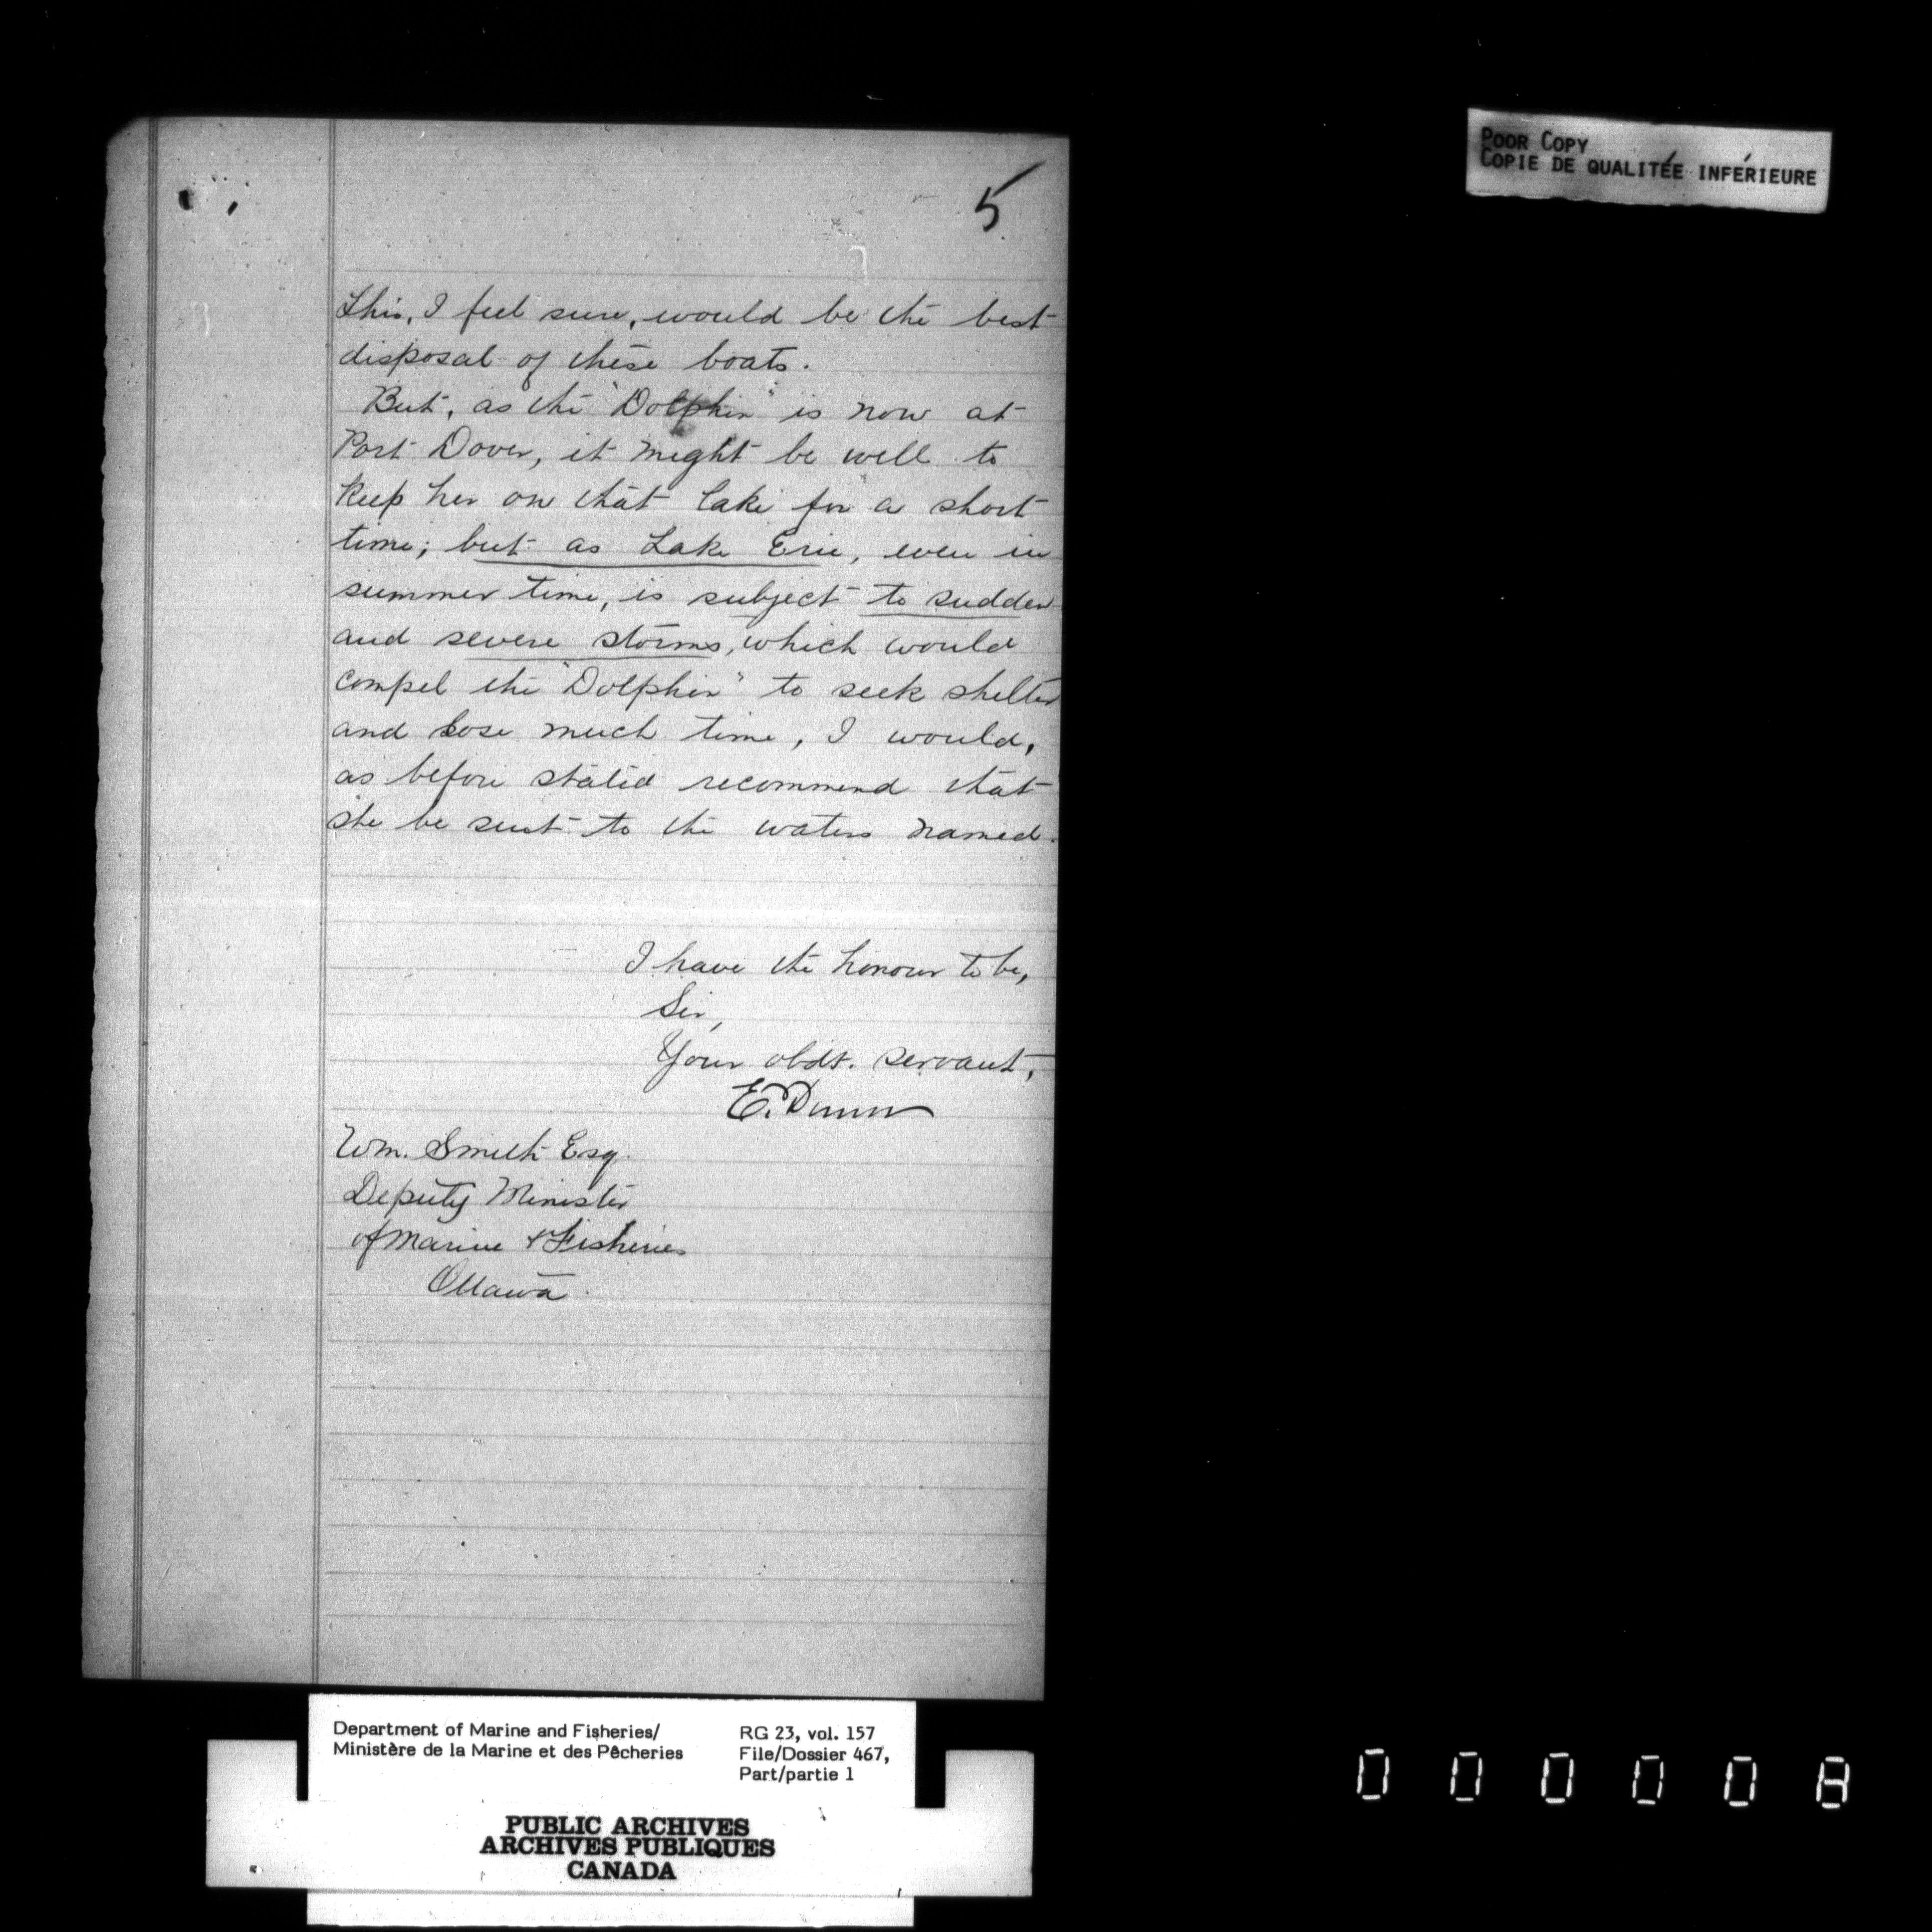 POOR COPY
COPIE DE QUALITÉE INFÉRIEURE
5
This, I feel sure, would be the best
disposal of these boats.
But, as the "Dolphin" is now at
Port Dover, it might be well to
keep her on that lake for a short
time; but as Lake Erie, even in
summer time, is subject to sudden
and severe storms, which would
compel the "Dolphin" to seek shelter
and lose much time, I would,
as before stated recommend that
she be sent to the waters named.
I have the honour to be,
Sir,
Your obdt. servant,
E. Dunn
Wm. Smith Esq.
Deputy Minister
of Marine & Fisheries
Ottawa.
Department of Marine and Fisheries/
Ministère de la Marine et des Pêcheries
RG 23, vol. 157
File/Dossier 467,
Part/partie 1
PUBLIC ARCHIVES
ARCHIVES PUBLIQUES
CANADA
000008